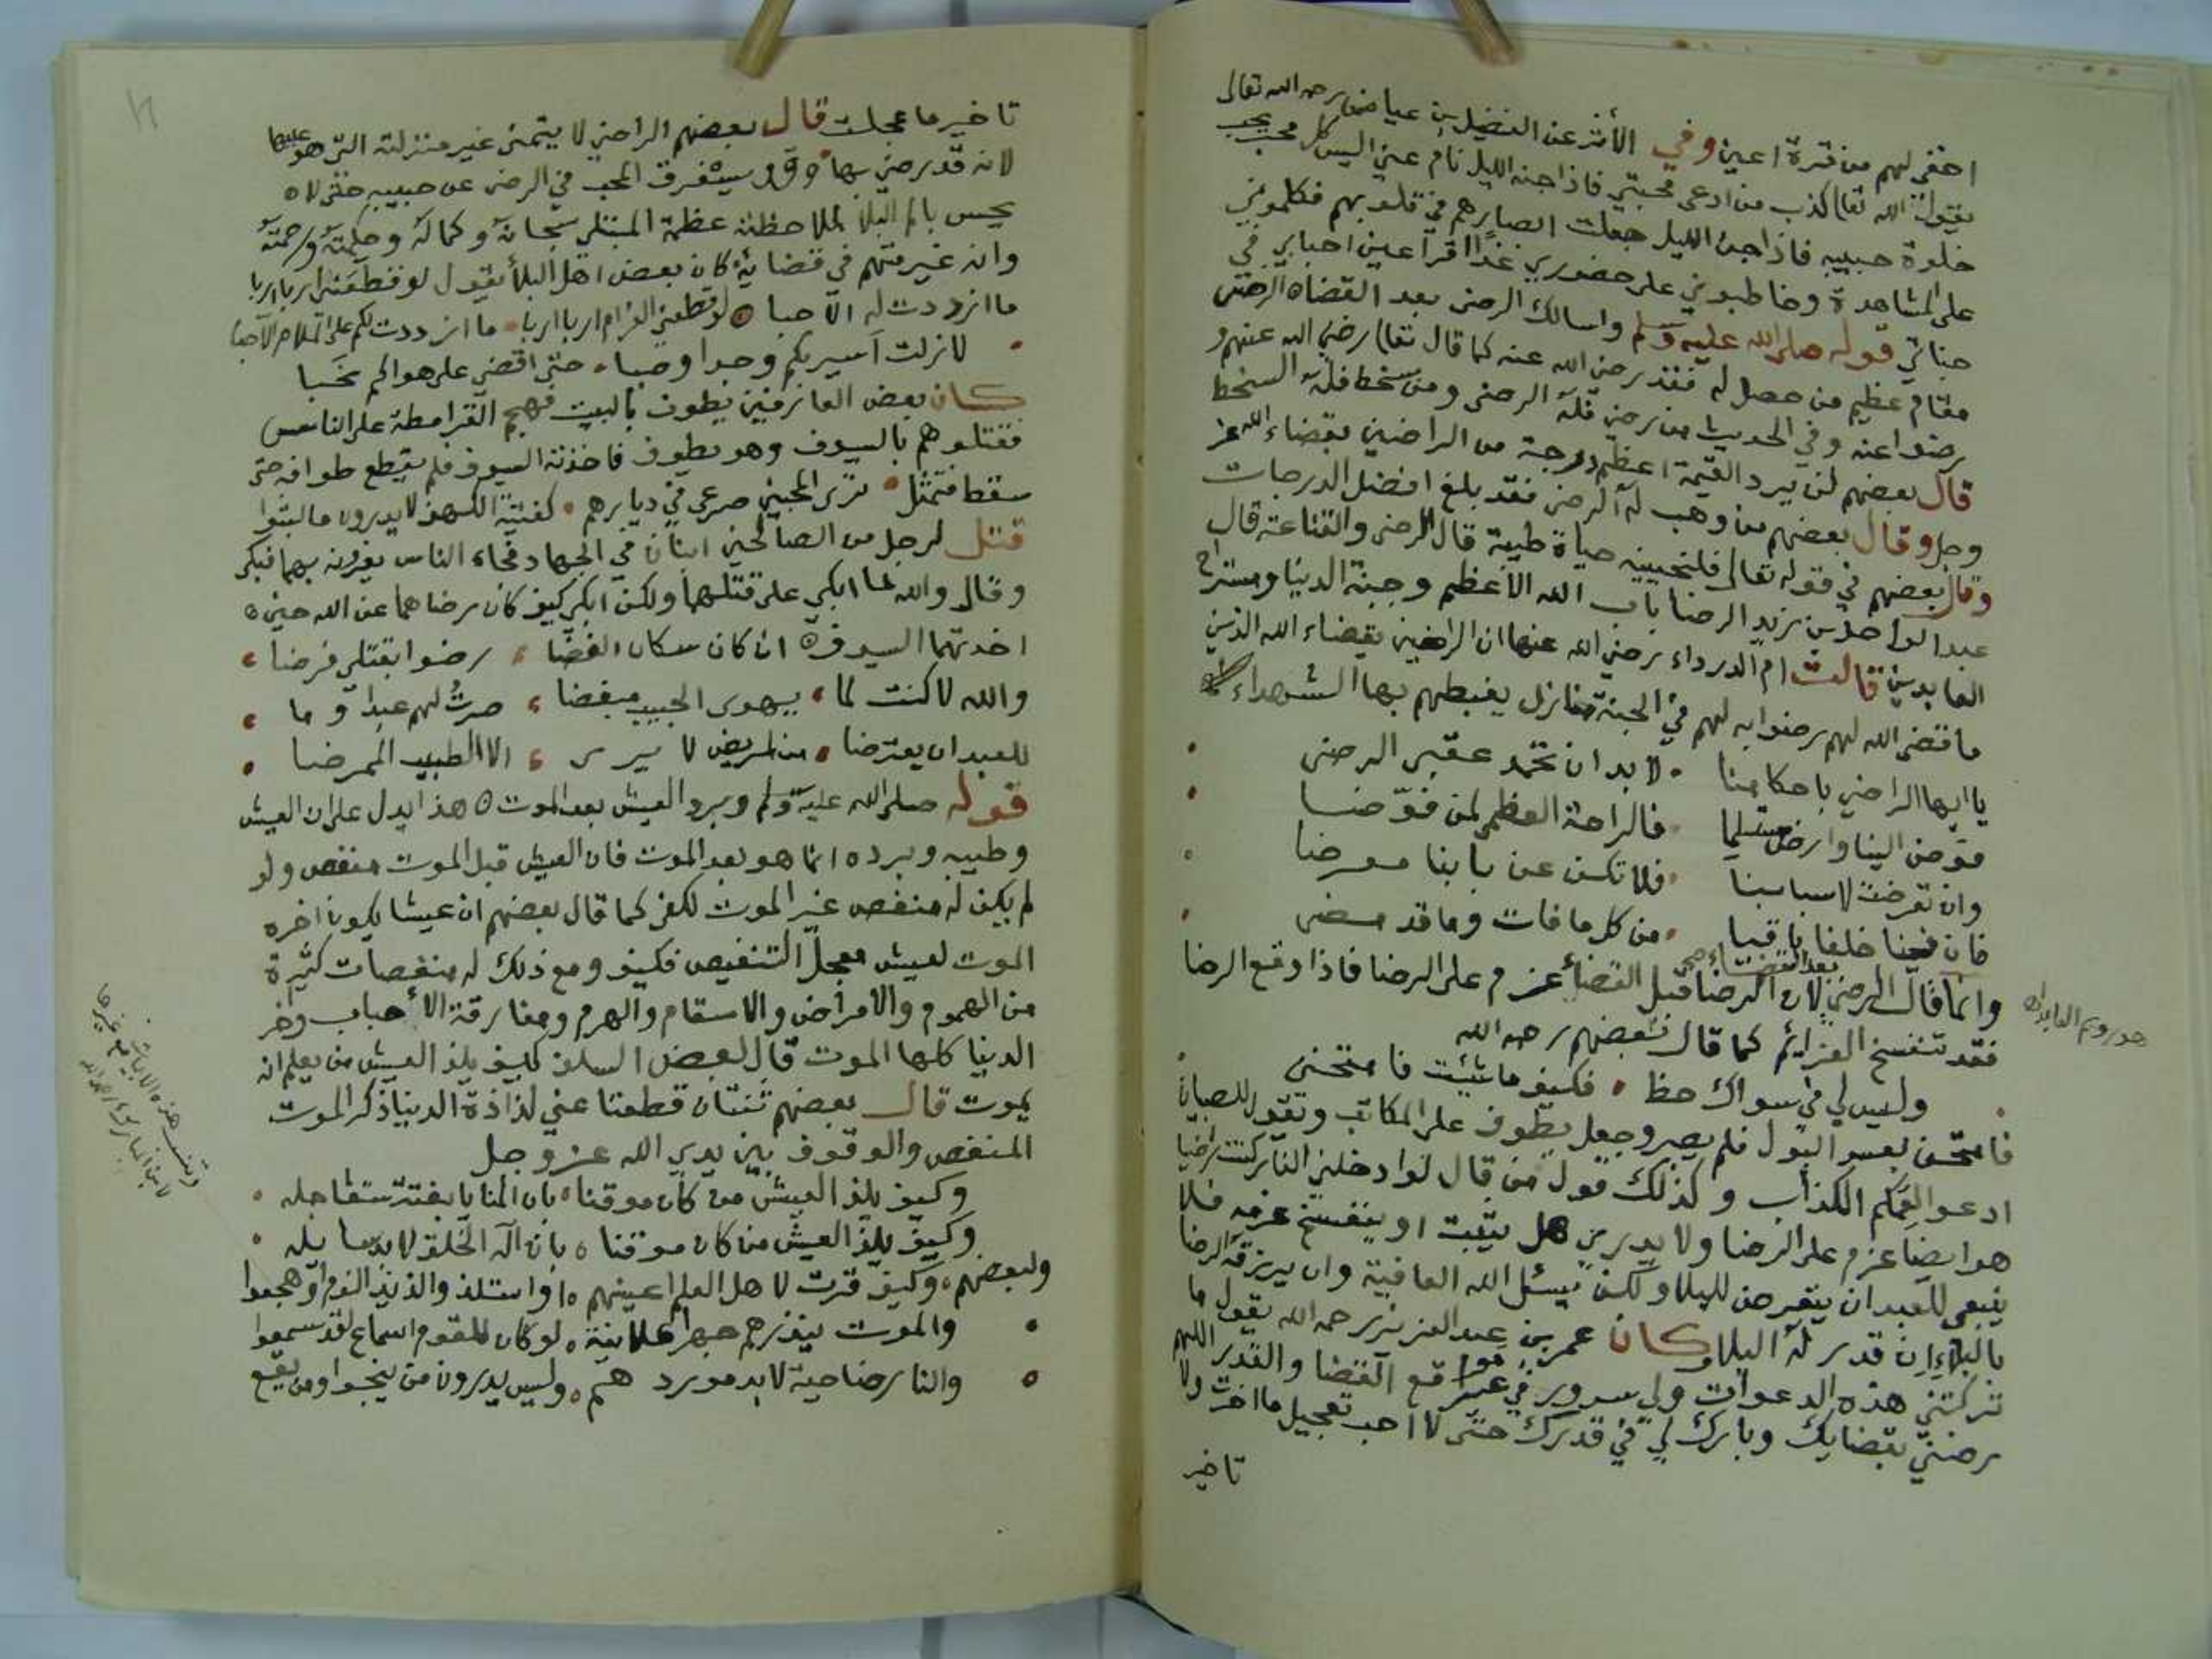 اخفي لهم من قرة اعين وفي الأثر عن الفضيل بن عياض رحمه الله تعالى
يقول الله تعالى كذب من ادعى محبتي فاذا جنه الليل نام عني اليس كل محب يحب
خلوة حبيبه فاذا جن الليل جعلت ابصارهم في قلوبهم فكلموني
على المشاهدة وخاطبوني على حضوري غدا اقر اعين احبابي في
جناتي قوله صلى الله عليه وسلم واسالك الرضى بعد القضاه الرضى
مقام عظيم من حصل له فقد رضي الله عنه كما قال تعالى رضي الله عنهم و
رضوا عنه وفي الحديث من رضي فله الرضى ومن سخط فله السخط
قال بعضهم لن يرد القيمة اعظم درجة من الراضين بقضاء الله عز
وجل وقال بعضهم من وهب له الرضى فقد بلغ افضل الدرجات
وقال بعضهم في قوله تعالى فلنحيينه حياة طيبة قال الرضى والقناعة قال
عبد الواحد بن زيد الرضا باب الله الاعظم وجنة الدنيا ومستراح
العابدين قالت ام الدرداء رضي الله عنها ان الراضين بقضاء الله الذين
ما قضى الله لهم رضوا به لهم في الجنة منازل يغبطهم بها الشهداء
يا ايها الراضي باحكامنا • لا بد ان تحمد عقبى الرضى
فوض الينا وارض مستسلما • فالراحة العظمى لمن فوضا
وان تعرضت لاسبابنا • فلا تكن عن بابنا معرضا
فان فينا خلفا باقيا • من كل ما فات وما قد مضى
وانما قال الرضى بعد القضاء صح لان الرضا قبل القضاء عزم على الرضا فاذا وقع الرضا
فقد تنفسخ العزائم كما قال بعضهم رحمه الله
وليس لي في سواك حظ • فكيف ما شئت فامتحني
فامتحن بعسر البول فلم يصبر وجعل يطوف على المكاتب ويقول للصبيان
ادعوا لعمكم الكذاب وكذلك قول من قال لو ادخلني النار كنت راضيا
هو ايضا عزم على الرضا ولا يدري هل يثبت او ينفسخ عزمه فلا
ينبغي للعبد ان يتعرض للبلاء ولكن يسئل الله العافية وان يرزقه الرضا
بالبلاء ان قدر له البلاء وكان عمر بن عبد العزيز رحمه الله يقول ما
تركتني هذه الدعوات ولي سرور في غير مواقع القضا والقدر اللهم
رضني بقضايك وبارك لي في قدرك حتى لا احب تعجيل ما اخرت ولا
تاخير
تاخير ما عجلت قال بعضهم الراضي لا يتمنى غير منزلته التي هو عليها
لانه قد رضي بها وقد يستغرق المحب في الرضى عن حبيبه حتى لا
يحس بالم البلاء لملاحظته عظمة المبتلي سبحانه وكماله وحكمته ورحمته
وانه غير متهم في قضايه كان بعض اهل البلاء يقول لو قطعني اربا اربا
ما ازددت له الا حبا • لو قطعني الغرام اربا اربا • ما ازددت لكم على الملام الا حبا
• لا زلت اسيركم وجدا وصبا • حتى اقضي على هواكم نحبا
كان بعض العارفين يطوف بالبيت فهجم القرامطة على الناس
فقتلوهم بالسيوف وهو يطوف فاخذته السيوف فلم يقطع طوافه حتى
سقط فتمثل • ترى المحبين صرعى في ديارهم • كفتية الكهف لا يدرون ما لبثوا
قتل لرجل من الصالحين ابنان في الجهاد فجاء الناس يعزونه بهما فبكى
وقال والله لما ابكي على قتلهما ولكن ابكي كيف كان رضاهما عن الله حين
اخذتهما السيوف ان كان سكان الغضا • رضوا بقتلي فرضا
والله لا كنت لما • يهوى الحبيب مبغضا • صرت لهم عبدا وما
للعبد ان يعترضا • من لمريض لا يرى • الا الطبيب الممرضا
قوله صلى الله عليه وسلم وبرد العيش بعد الموت هذا يدل على ان العيش
وطيبه وبرده انما هو بعد الموت فان العيش قبل الموت منغص ولو
لم يكن له منغص غير الموت لكفى كما قال بعضهم ان عيشا يكون اخره
الموت لعيش معجل التنغيص فكيف ومع ذلك له منغصات كثيرة
من الهموم والامراض والاسقام والهرم ومفارقة الأحباب وخر
الدنيا كلها الموت قال بعض السلف كيف يلذ العيش من يعلم انه
يموت قال بعضهم ثنتان قطعتا عني لذاذة الدنيا ذكر الموت
المنغص والوقوف بين يدي الله عز وجل
وكيف يلذ العيش من كان موقنا • بان المنايا بغتة ستعاجله
وكيف يلذ العيش من كان موقنا • بان اله الخلق لا بد سايله
ولبعضهم • وكيف قرت لاهل العلم اعينهم • او استلذوا لذيذ النوم او هجعوا
• والموت ينذرهم جهرا علانية • لو كان للقوم اسماع لقد سمعوا
• والنار ضاحية لا بد موردهم • وليس يدرون من ينجوا ومن يقع